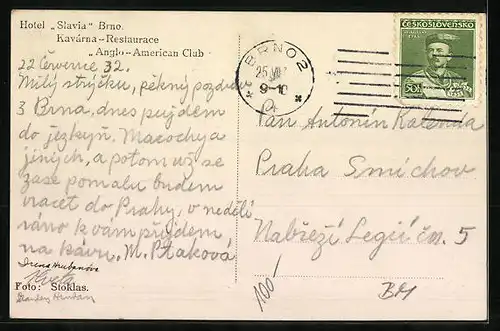 Hotel „Slavia“ Brno.
Kavárna-Restaurace
„Anglo-American Club
22 Července 32.
Milý strýčku, pěkný pozdrav
z Brna, dnes pujdem
do jezkyň, Macochy a
jiných, a potom už se
zase pomalu budem
vracet do Prahy, v neděli
ráno k vám přijdem
na kávu, M. Ptaková
Irena Hrubanova
Květa
Foto: Stoklas.
BRNO 2
25. VII
9-10
ČESKOSLOVENSKO
50h
Pan Antonín Kalenda
Praha Smíchov
Nábřeží Legií čís. 5
100
BM